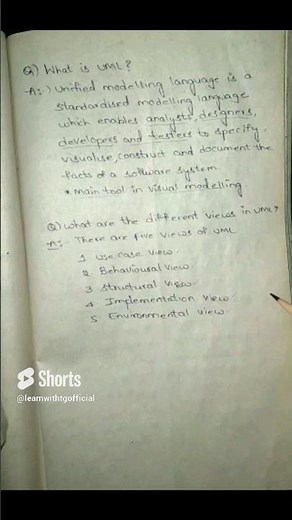 Q) What is UML?
A:-) Unified modelling language is a
standardised modelling language
which enables analysts, designers,
developers and testers to specify
visualise, construct and document the
facts of a software system
* main tool in visual modelling
Q) what are the different views in UML?
A:- There are five views of UML
1 use case view
2 Behavioural view
3 structural view
4 Implementation view
5 Environmental view
Shorts
@learnwithtgofficial